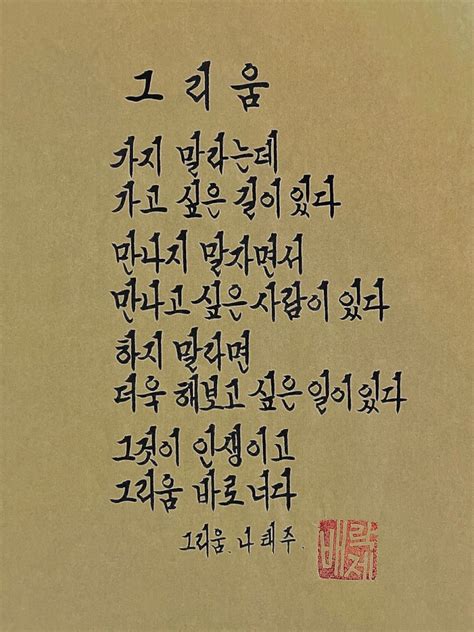 그리움
가지 말라는데
가고 싶은 길이 있다
만나지 말자면서
만나고 싶은 사람이 있다
하지 말라면
더욱 해보고 싶은 일이 있다
그것이 인생이고
그리움 바로 너다
그리움. 나태주.